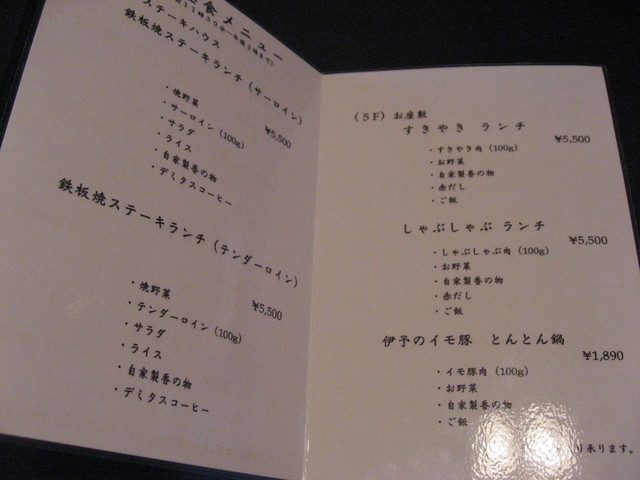 食メニュー
ステーキハウス
鉄板焼ステーキランチ（サーロイン）
¥5,500
・焼野菜
・サーロイン（100g）
・サラダ
・ライス
・自家製香の物
・デミタスコーヒー
鉄板焼ステーキランチ（テンダーロイン）
¥5,500
・焼野菜
・テンダーロイン（100g）
・サラダ
・ライス
・自家製香の物
・デミタスコーヒー
（5F）お座敷
すきやき ランチ
¥5,500
・すきやき肉（100g）
・お野菜
・自家製香の物
・赤だし
・ご飯
しゃぶしゃぶ ランチ
¥5,500
・しゃぶしゃぶ肉（100g）
・お野菜
・自家製香の物
・赤だし
・ご飯
伊予のイモ豚 とんとん鍋
¥1,890
・イモ豚肉（100g）
・お野菜
・自家製香の物
・ご飯
り承ります。